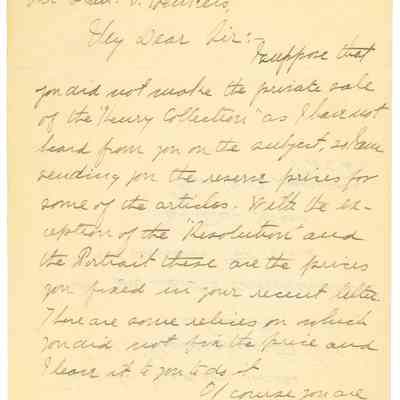 Mr. Stan. V. Henkels,
My Dear Sir:-
I suppose that
you did not make the private sale
of the "Henry Collection" as I have not
heard from you on the subject, so I am
sending you the reserve prices for
some of the articles. With the ex-
ception of the "Resolution" and
the Portrait these are the prices
you fixed in your recent letter.
There are some relics on which
you did not fix the price and
I leave it to you to do it.
Of course you are